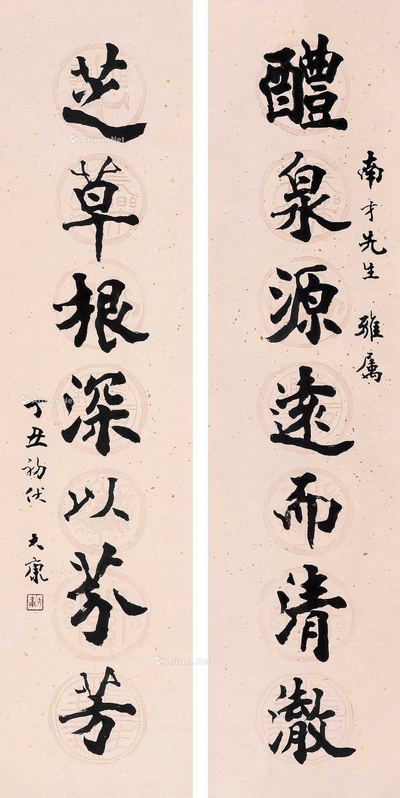 醴泉源遠而清澈
南才先生 雅属
芝草根深以芬芳
丁丑初伏 大康